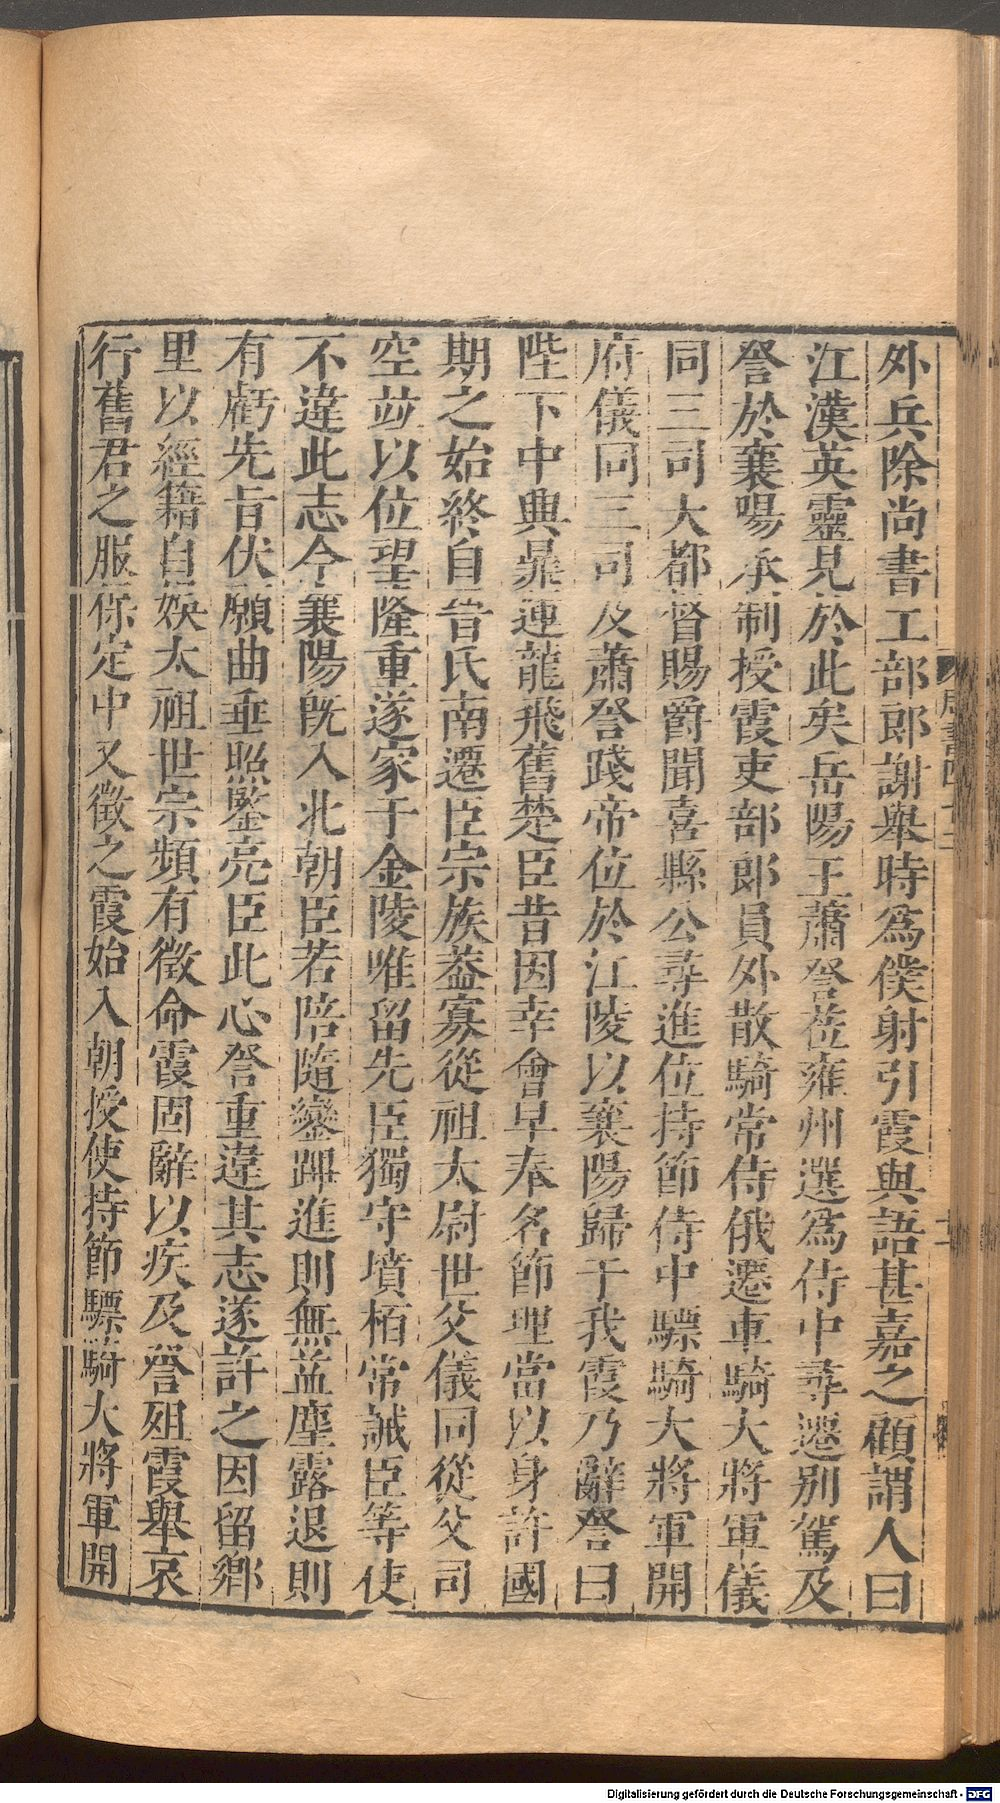 外兵除尚書工部郎謝舉時爲僕射引霞與語甚嘉之顧謂人曰
江漢英靈見於此矣岳陽王蕭詧莅雍州選爲侍中尋遷別駕及
詧於襄陽承制授霞吏部郎員外散騎常侍俄遷車騎大將軍儀
同三司大都督賜爵聞喜縣公尋進位持節侍中驃騎大將軍開
府儀同三司及蕭詧踐帝位於江陵以襄陽歸于我霞乃辭詧曰
陛下中興鼎運龍飛舊楚臣昔因幸會早奉名節理當以身許國
期之始終自晉氏南遷臣宗族葢寡從祖太尉世父儀同從父司
空竝以位望隆重遂家于金陵唯留先臣獨守墳栢常誡臣等使
不違此志今襄陽旣入北朝臣若陪隨鑾蹕進則無益塵露退則
有虧先旨伏願曲垂照鑒亮臣此心詧重違其志遂許之因留鄉
里以經籍自娛太祖世宗頻有徵命霞固辭以疾及詧殂霞舉哀
行舊君之服保定中又徵之霞始入朝授使持節驃騎大將軍開
周書四十二
Digitalisierung gefördert durch die Deutsche Forschungsgemeinschaft - DFG